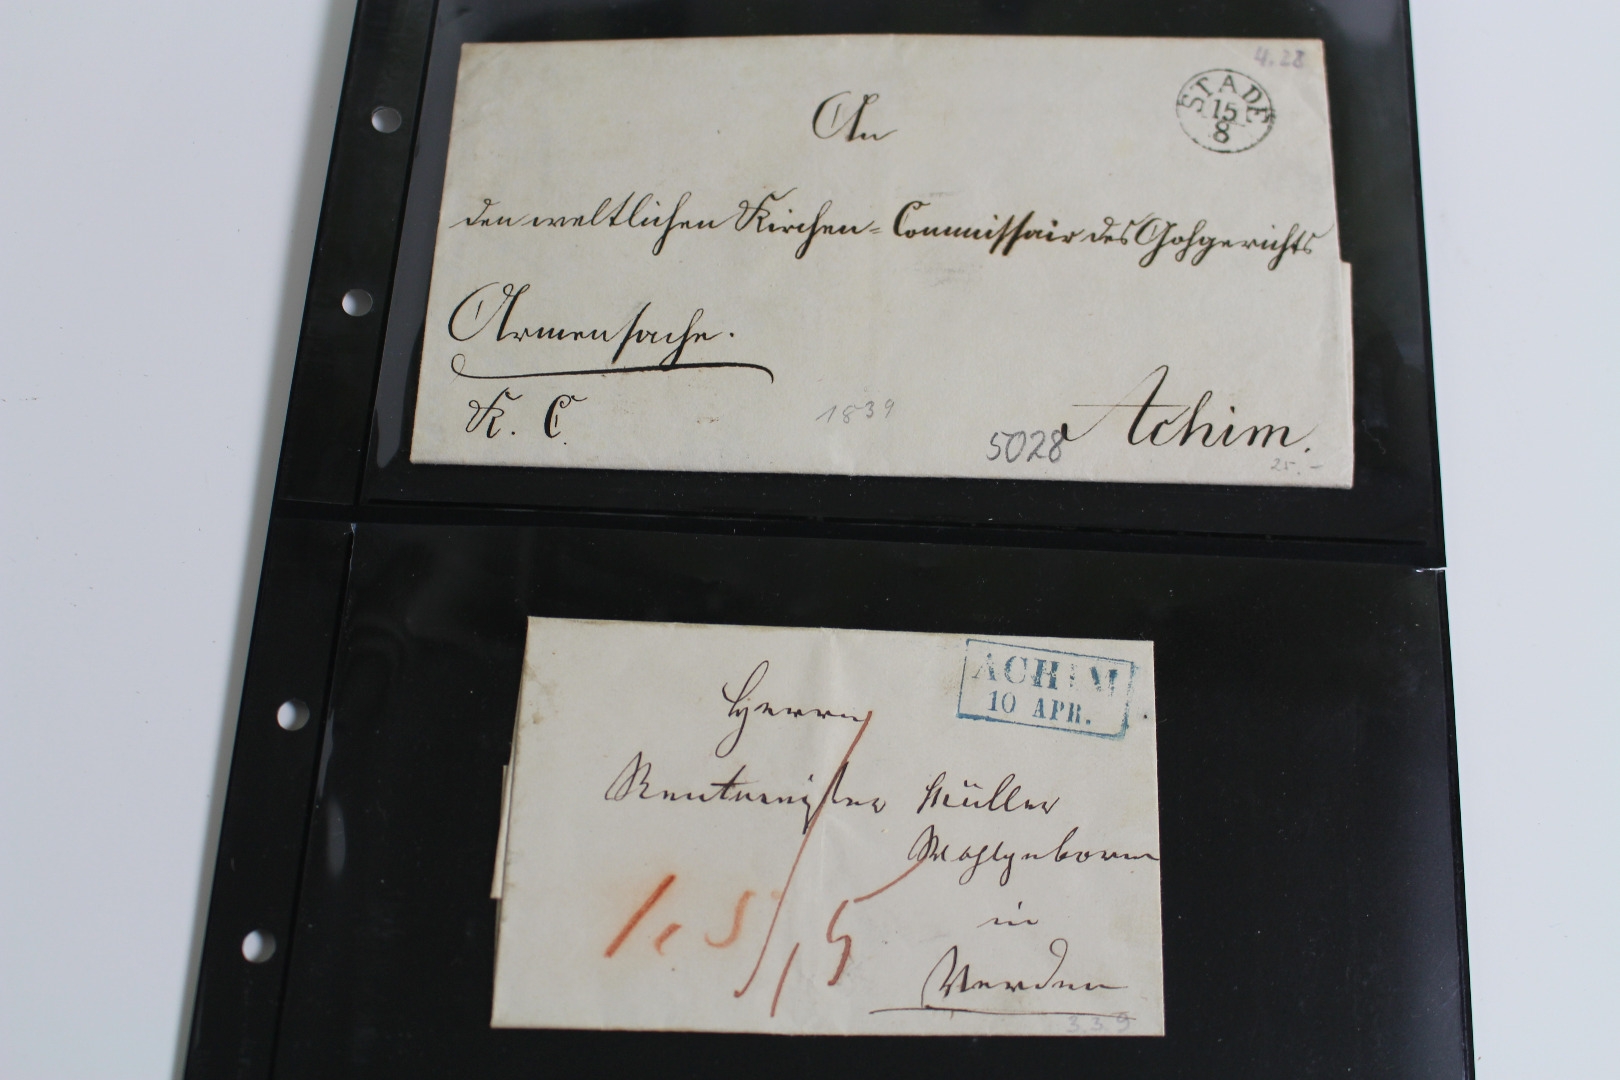 4.28
STADE
15
8
An
den weltlichen Kirchen=Commissair des Gohgerichts
Armensache.
K. C.
1839
5028
Achim.
25.-
ACHIM
10 APR.
Herrn
Rentmeister Müller
Wohlgeboren
in
15
Verden
3.3.9